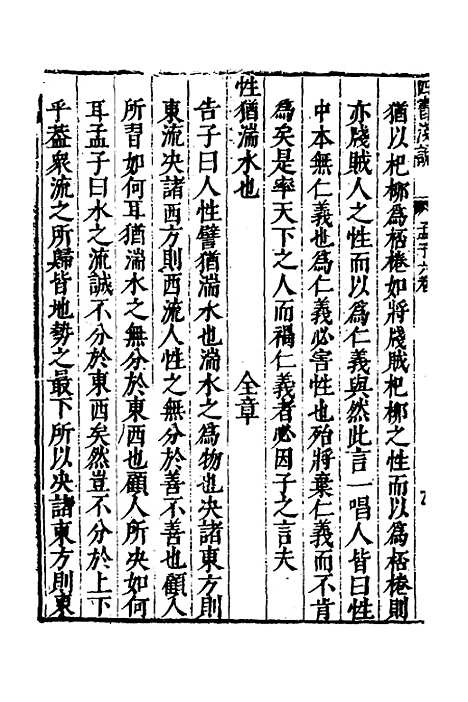 四書淺說 孟子六卷
猶以杞柳為桮棬如將戕賊杞柳之性而以為桮棬則
亦戕賊人之性而以為仁義與然此言一唱人皆曰性
中本無仁義也為仁義必害性也殆將棄仁義而不肯
為矣是率天下之人而禍仁義者必因子之言夫
性猶湍水也 全章
告子曰人性譬猶湍水也湍水之為物也决諸東方則
東流决諸西方則西流人性之無分於善不善也顧人
所習如何耳猶湍水之無分於東西也顧人所决如何
耳孟子曰水之流誠不分於東西矣然豈不分於上下
乎蓋衆流之所歸皆地勢之最下所以决諸東方則東